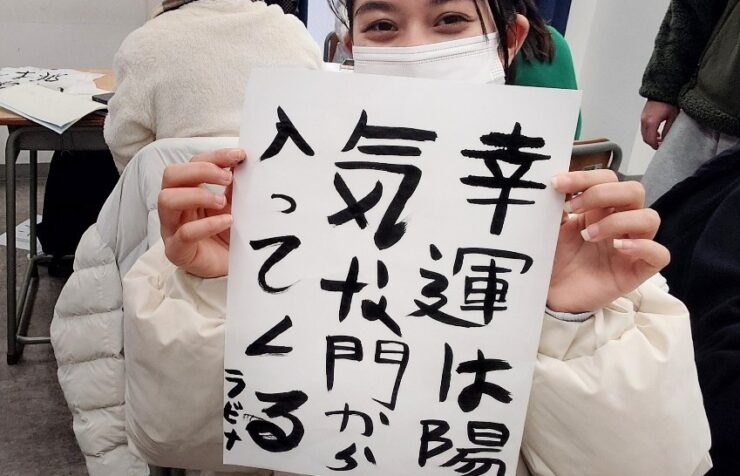 幸運は陽
気な門から
入ってくる
ラビナ